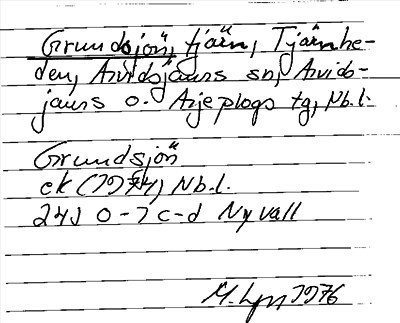 Grundsjön, tjärn, Tjärnhe-
den, Arvidsjaurs sn, Arvids-
jaurs o. Arjeplogs tg, Nb.l.
Grundsjön
ek (1974), Nb.l.
24J 0-1 c-d Nyvall
M. Lgn 1976